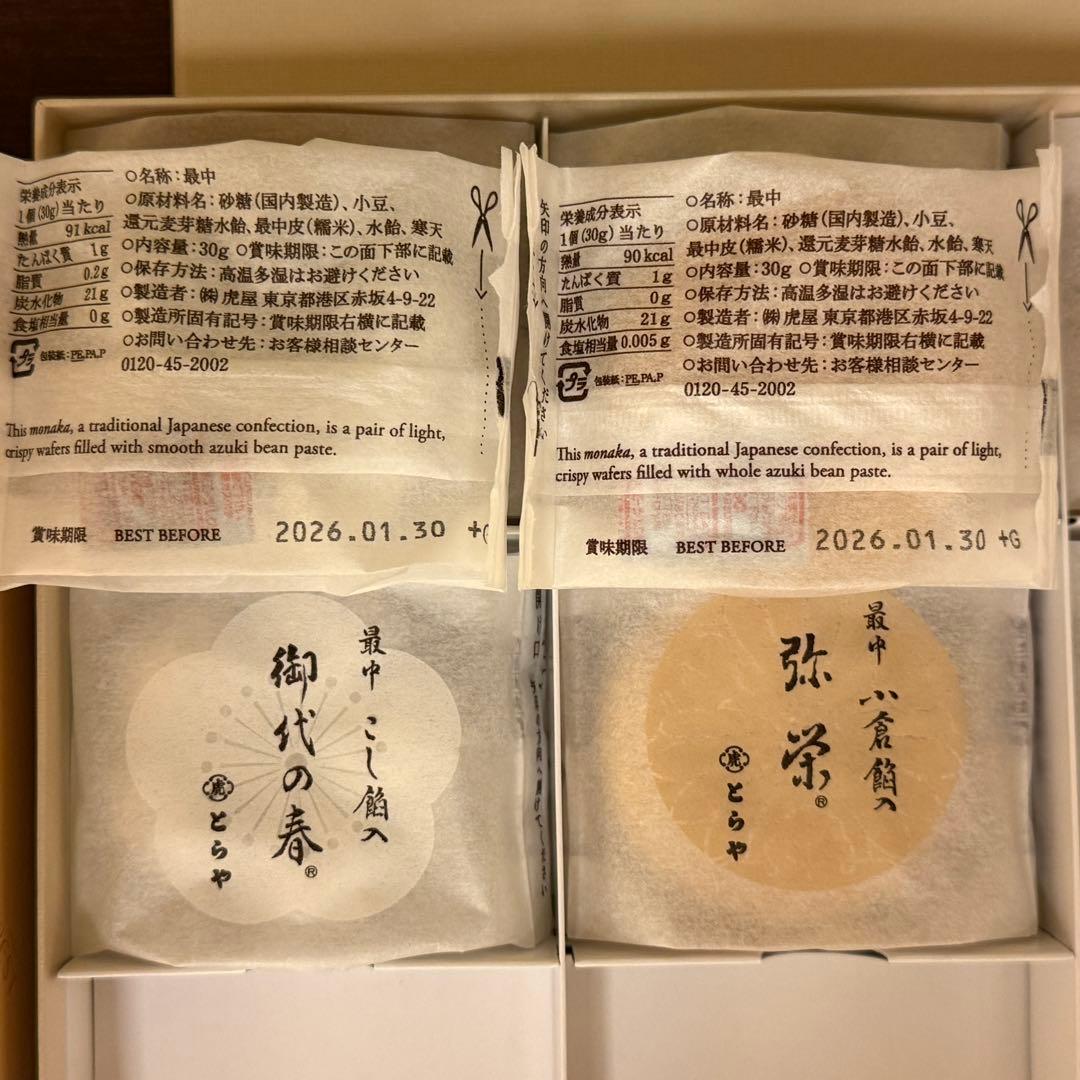 栄養成分表示
1個(30g)当たり
熱量 91kcal
たんぱく質 1g
脂質 0.2g
炭水化物 21g
食塩相当量 0g
プラ 包装紙：PE,PA,P
○名称：最中
○原材料名：砂糖（国内製造）、小豆、
還元麦芽糖水飴、最中皮（糯米）、水飴、寒天
○内容量：30g ○賞味期限：この面下部に記載
○保存方法：高温多湿はお避けください
○製造者：㈱虎屋 東京都港区赤坂4-9-22
○製造所固有記号：賞味期限右横に記載
○お問い合わせ先：お客様相談センター
0120-45-2002
This monaka, a traditional Japanese confection, is a pair of light,
crispy wafers filled with smooth azuki bean paste.
賞味期限 BEST BEFORE 2026.01.30 +G
矢印の方向へ開けてください
栄養成分表示
1個(30g)当たり
熱量 90kcal
たんぱく質 1g
脂質 0g
炭水化物 21g
食塩相当量 0.005g
プラ 包装紙：PE,PA,P
○名称：最中
○原材料名：砂糖（国内製造）、小豆、
最中皮（糯米）、還元麦芽糖水飴、水飴、寒天
○内容量：30g ○賞味期限：この面下部に記載
○保存方法：高温多湿はお避けください
○製造者：㈱虎屋 東京都港区赤坂4-9-22
○製造所固有記号：賞味期限右横に記載
○お問い合わせ先：お客様相談センター
0120-45-2002
This monaka, a traditional Japanese confection, is a pair of light,
crispy wafers filled with whole azuki bean paste.
賞味期限 BEST BEFORE 2026.01.30 +G
最中 こし餡入
御代の春®
虎 とらや
最中 小倉餡入
弥栄®
虎 とらや